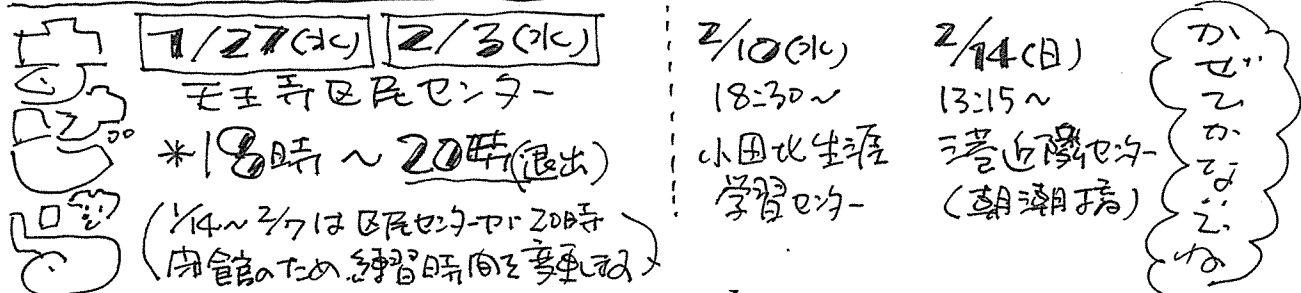 1/27(水) 2/3(水)
天王寺区民センター
*18時～20時(退出)
(1/14～2/7は区民センターが20時
閉館のため、練習時間を変更します)
2/10(水)
18:30～
小田北生涯
学習センター
2/14(日)
13:15～
港近隣センター
(朝潮橋)
かぜひかないでね